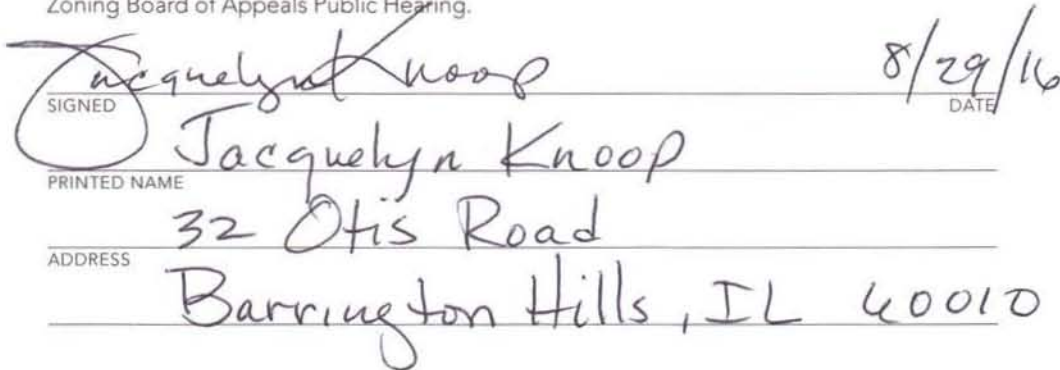 Zoning Board of Appeals Public Hearing.
Jacquelyn Knoop 8/29/16
SIGNED DATE
Jacquelyn Knoop
PRINTED NAME
32 Otis Road
ADDRESS
Barrington Hills, IL 60010